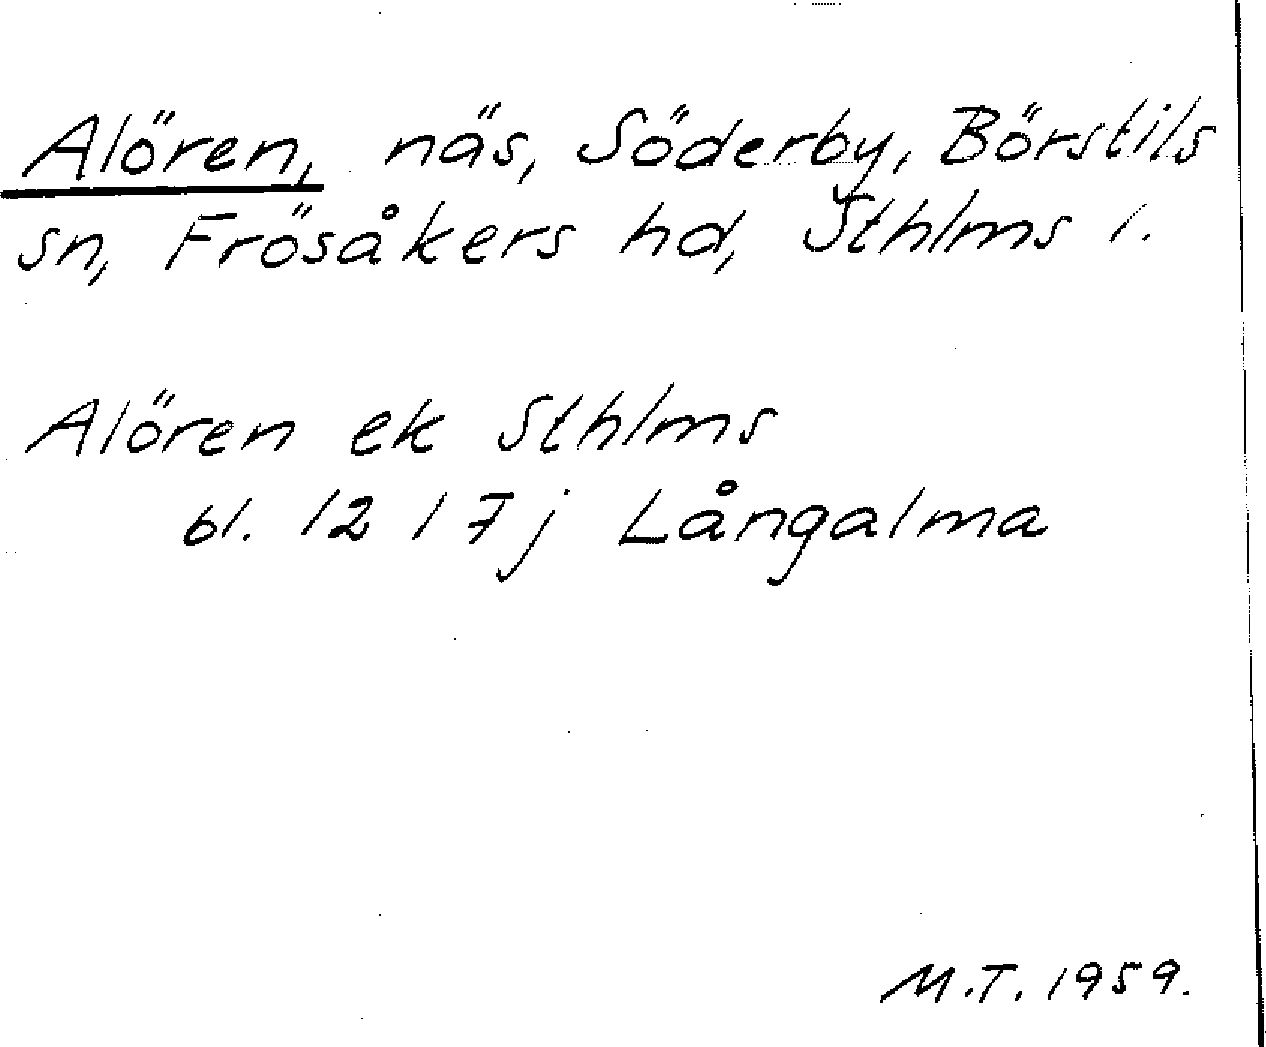 Alören, näs, Söderby, Börstils
sn, Frösåkers hd, Sthlms l.
Alören ek Sthlms
bl. 12 I 7j Långalma
M.T. 1959.